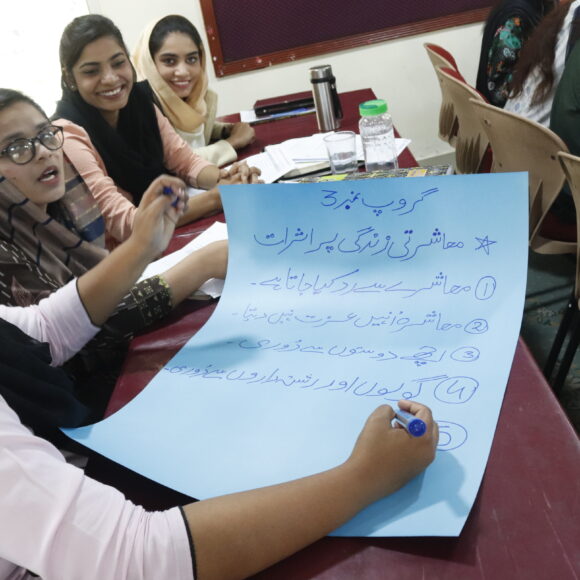 گروپ نمبر 3
☆ معاشرتی زندگی پر اثرات
① معاشرے سے رد کیا جاتا ہے۔
② معاشرہ انہیں عزت نہیں دیتا۔
③ اچھے دوستوں سے دوری۔
④ گھر والوں اور رشتہ داروں سے دوری۔
⑤